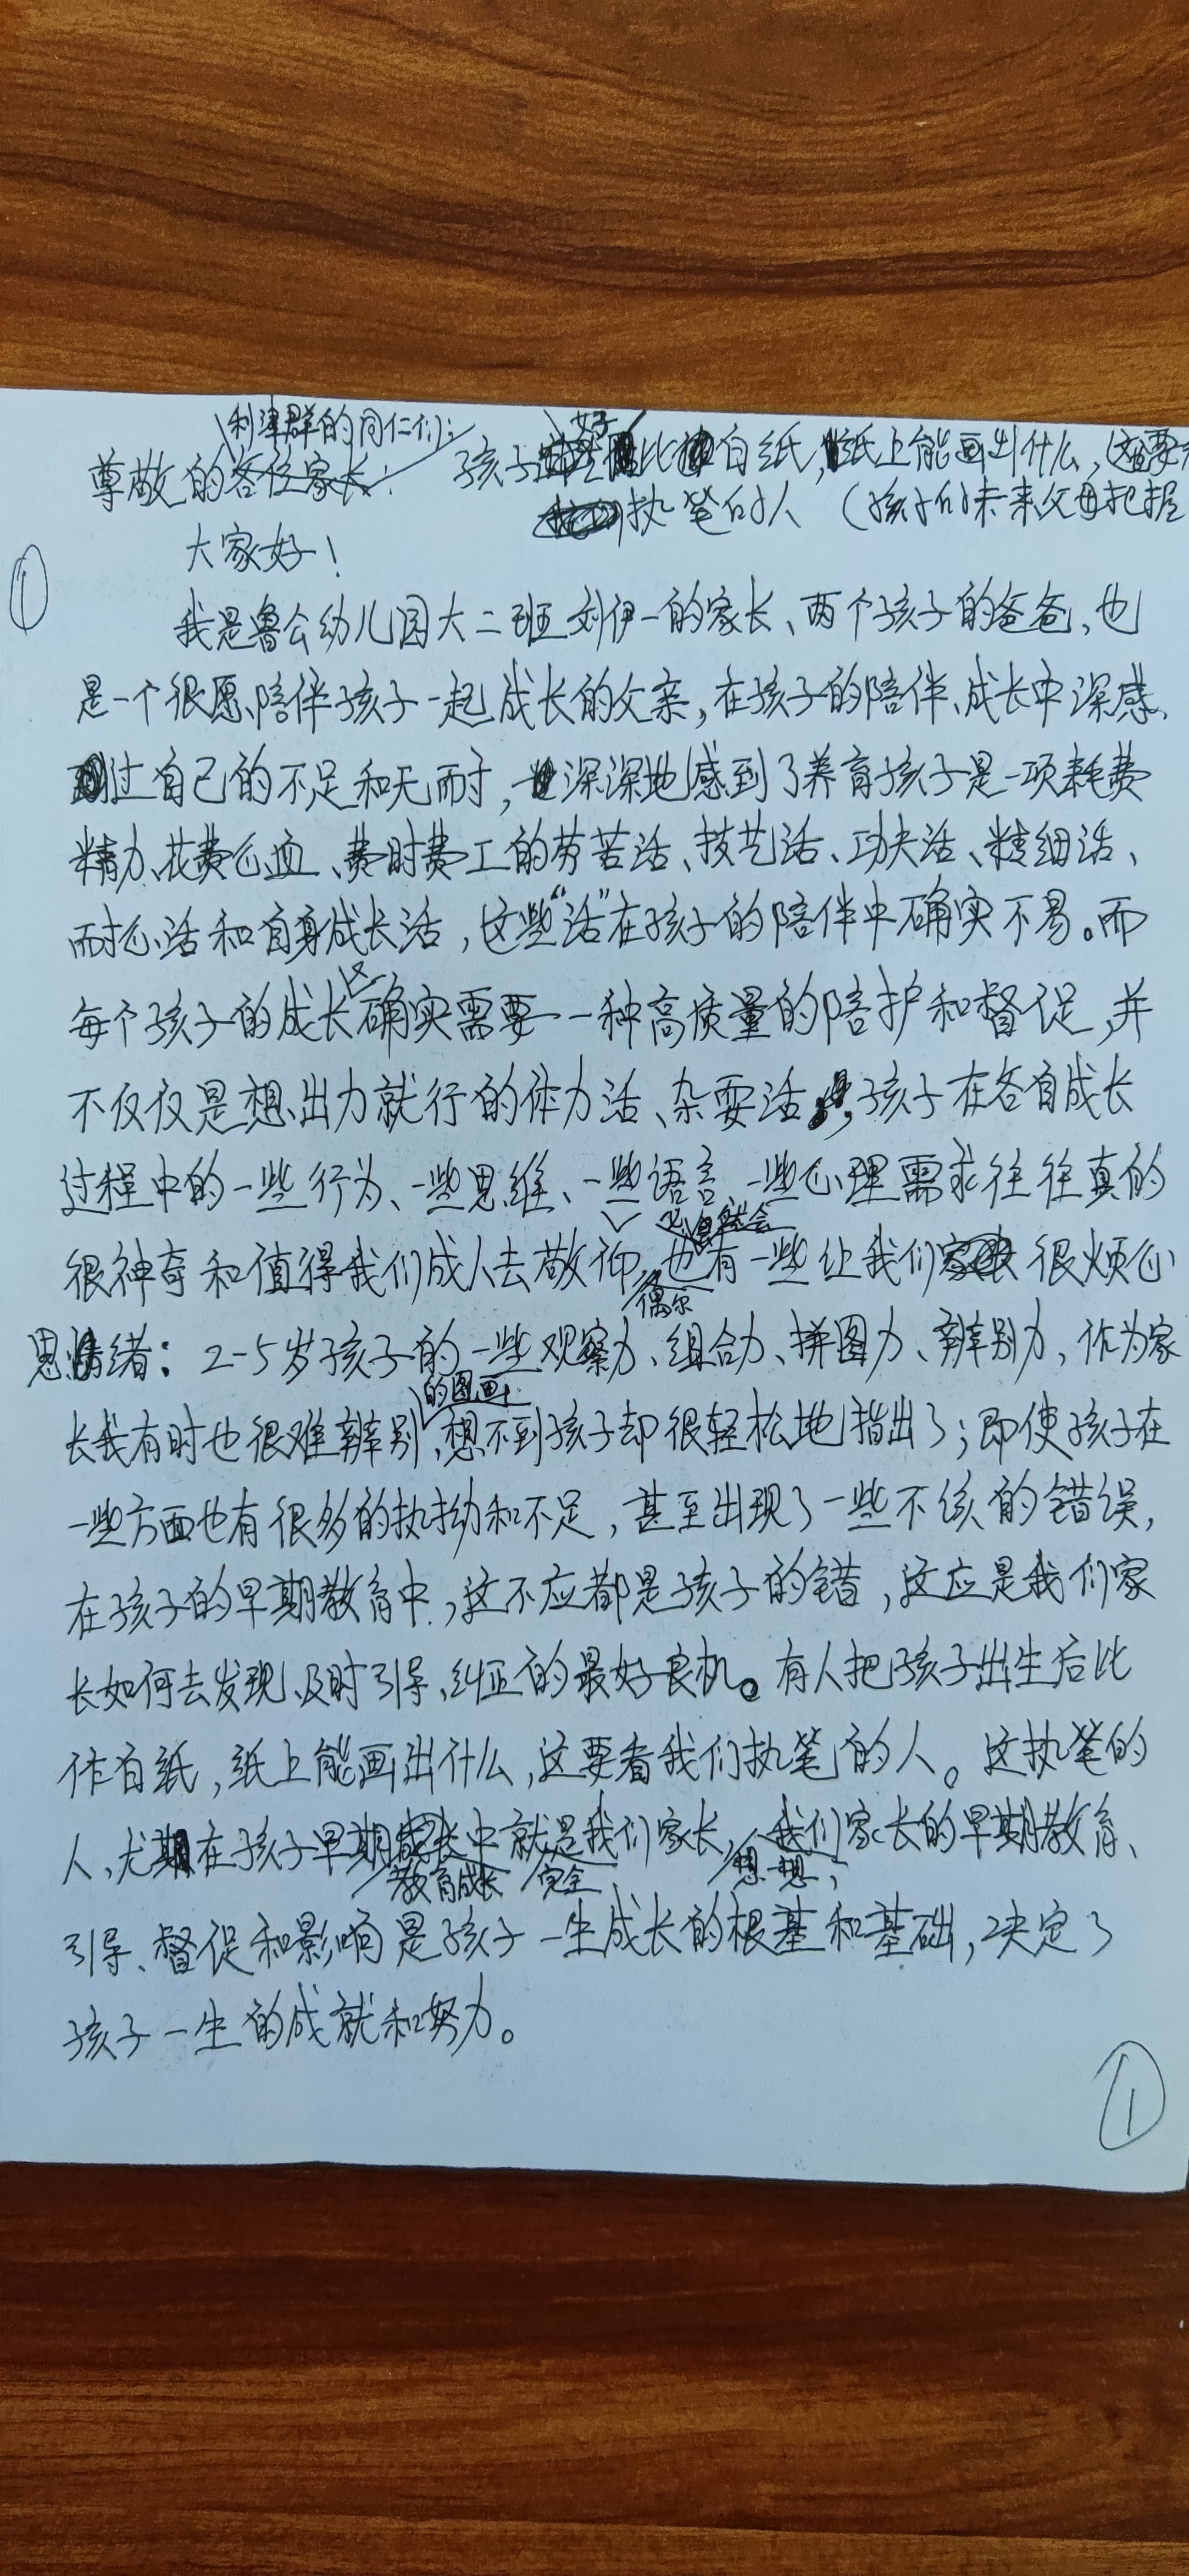 利津群的同仁们：
尊敬的各位家长：
孩子好比白纸，纸上能画出什么，这要
执笔的人（孩子的未来父母把握
大家好！
①
我是鲁公幼儿园大二班刘伊一的家长、两个孩子的爸爸，也
是一个很愿陪伴孩子一起成长的父亲，在孩子的陪伴、成长中深感
过自己的不足和无耐，深深地感到了养育孩子是一项耗费
精力、花费心血、费时费工的劳苦活、技艺活、功夫活、精细活、
耐心活和自身成长活，这些“活”在孩子的陪伴中确实不易。而
每个孩子的成长又确实需要一种高质量的陪护和督促，并
不仅仅是想出力就行的体力活、杂耍活，孩子在各自成长
过程中的一些行为、一些思维、一些语言、一些心理需求往往真的
很神奇和值得我们成人去敬仰，也有一些让我们很烦心
偶尔
思绪：2-5岁孩子的一些观察力、组合力、拼图力、辨别力，作为家
的图画，
长我有时也很难辨别，想不到孩子却很轻松地指出了；即使孩子在
一些方面也有很多的执拗和不足，甚至出现了一些不该的错误，
在孩子的早期教育中，这不应都是孩子的错，这应是我们家
长如何去发现、及时引导、纠正的最好良机。有人把孩子出生后比
作白纸，纸上能画出什么，这要看我们执笔的人。这执笔的
人，尤在孩子早期成长中就是我们家长，我们家长的早期教育、
教育成长 完全 想一想，
引导、督促和影响是孩子一生成长的根基和基础，决定了
孩子一生的成就和努力。
①